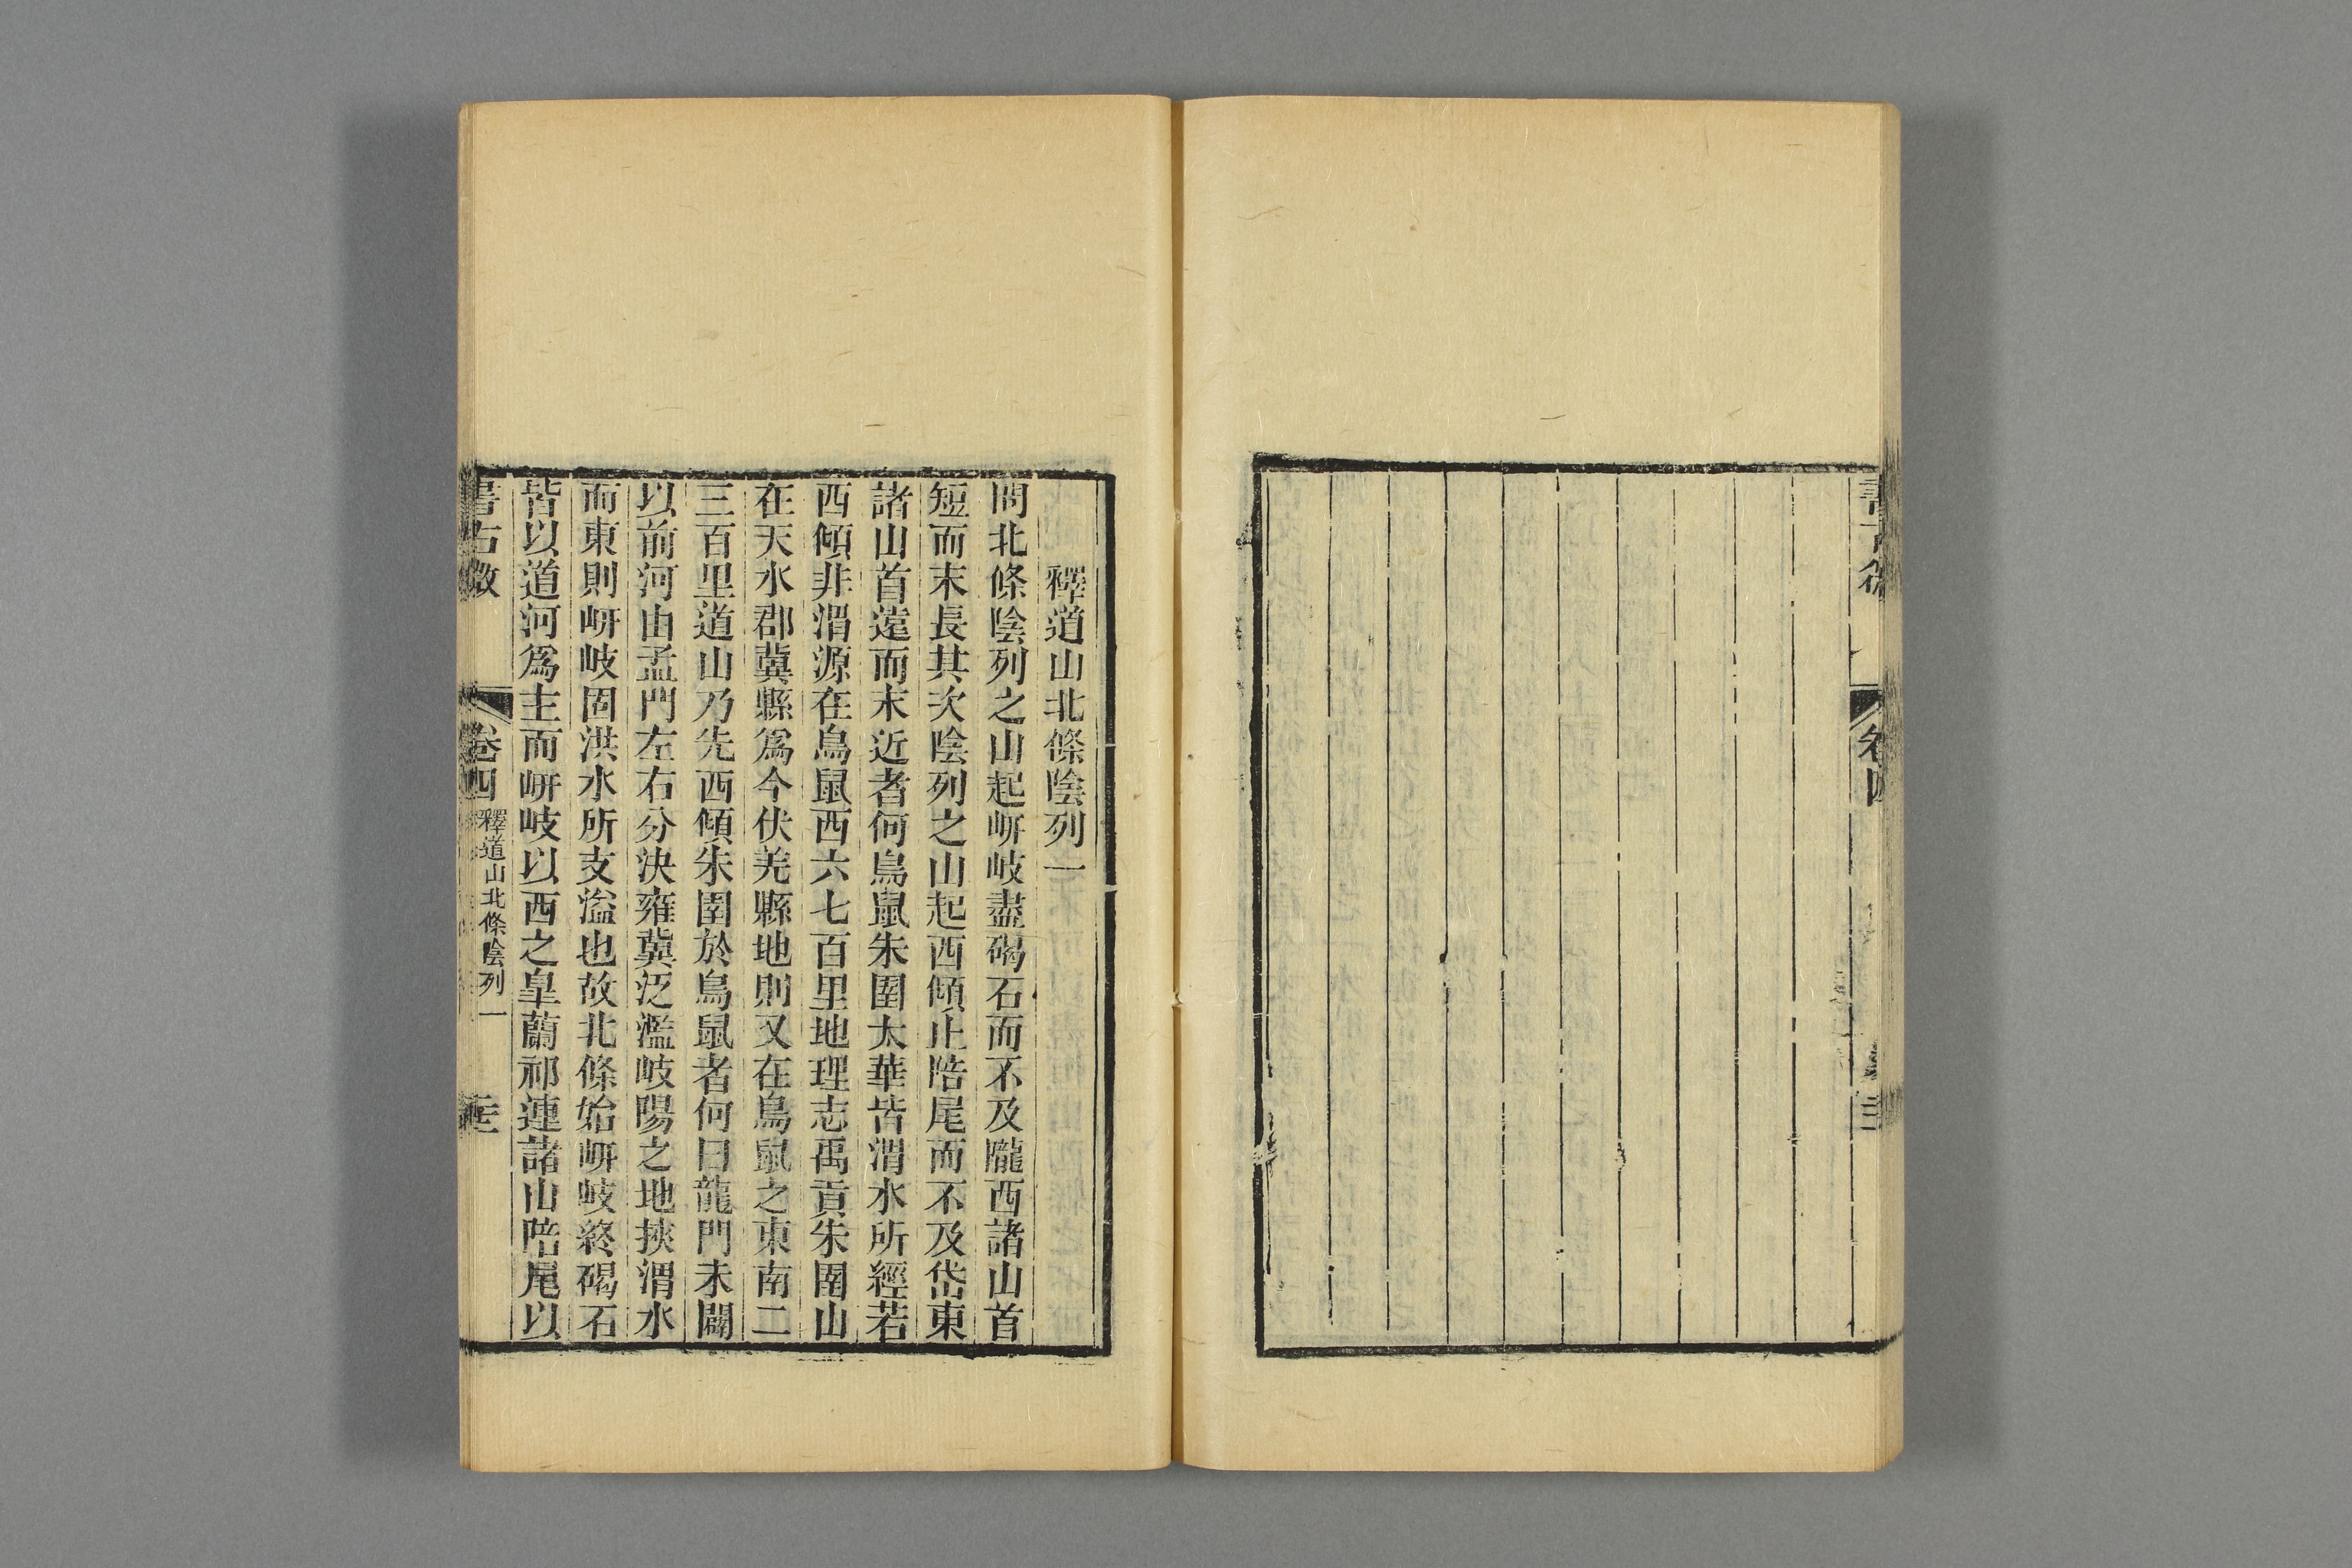 書古微
卷四
釋道山北條陰列一
問北條陰列之山起岍岐盡碣石而不及隴西諸山首
短而末長其次陰列之山起西傾止陪尾而不及岱東
諸山首遠而末近者何鳥鼠朱圉太華皆渭水所經若
西傾非渭源在鳥鼠西六七百里地理志禹貢朱圉山
在天水郡冀縣爲今伏羌縣地則又在鳥鼠之東南二
三百里道山乃先西傾朱圉於鳥鼠者何曰龍門未闢
以前河由孟門左右分決雍冀泛濫岐陽之地挾渭水
而東則岍岐固洪水所支溢也故北條始岍岐終碣石
皆以道河爲主而岍岐以西之皐蘭祁連諸山陪尾以
書古微
卷四
釋道山北條陰列一